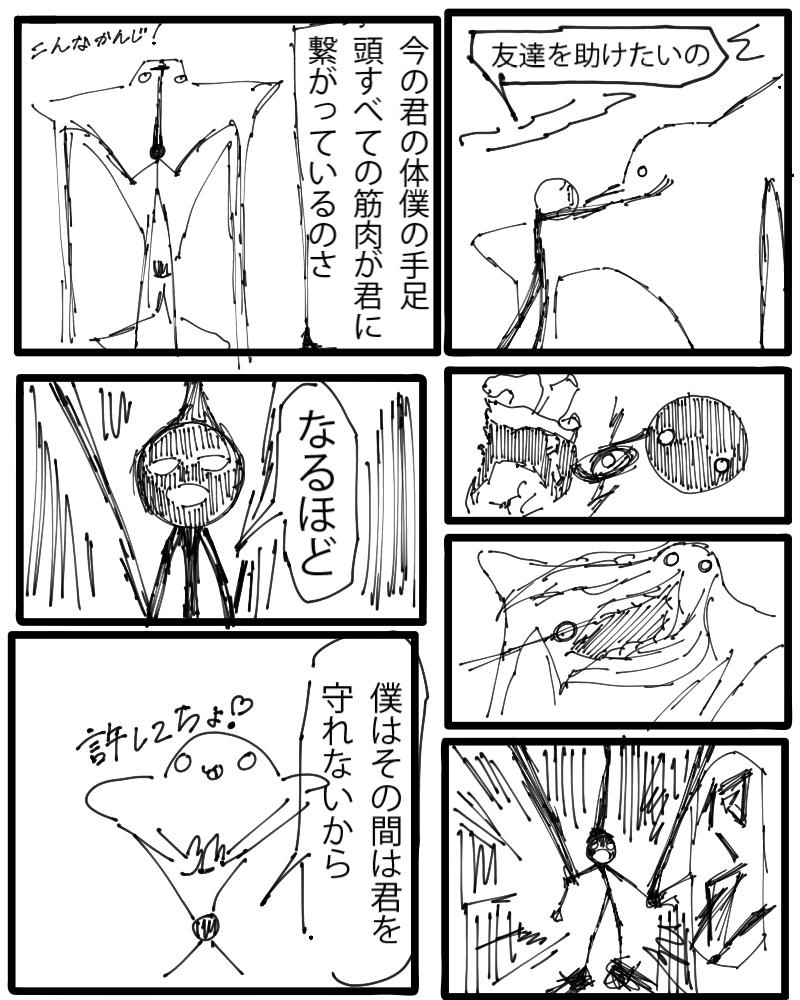 友達を助けたいの
今の君の体僕の手足
頭すべての筋肉が君に
繋がっているのさ
こんなかんじ!
なるほど
僕はその間は君を
守れないから
許してちょ!♡